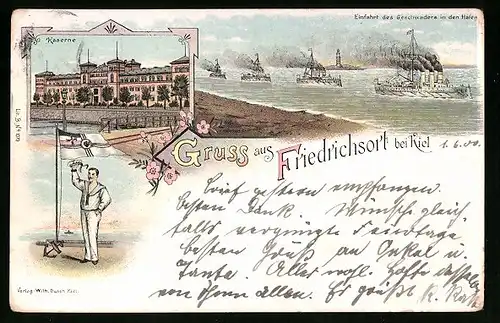 Kaserne
Einfahrt des Geschwaders in den Hafen
Gruss aus Friedrichsort bei Kiel
1.6.00.
Brief gestern empfangen.
besten Dank. Wünsche gleich-
falls vergnügte Feiertage
besten Gruß an Onkel u.
Tante. Alles wohl. Hoffe dasselbe
von Ihnen allen. Es grüßt